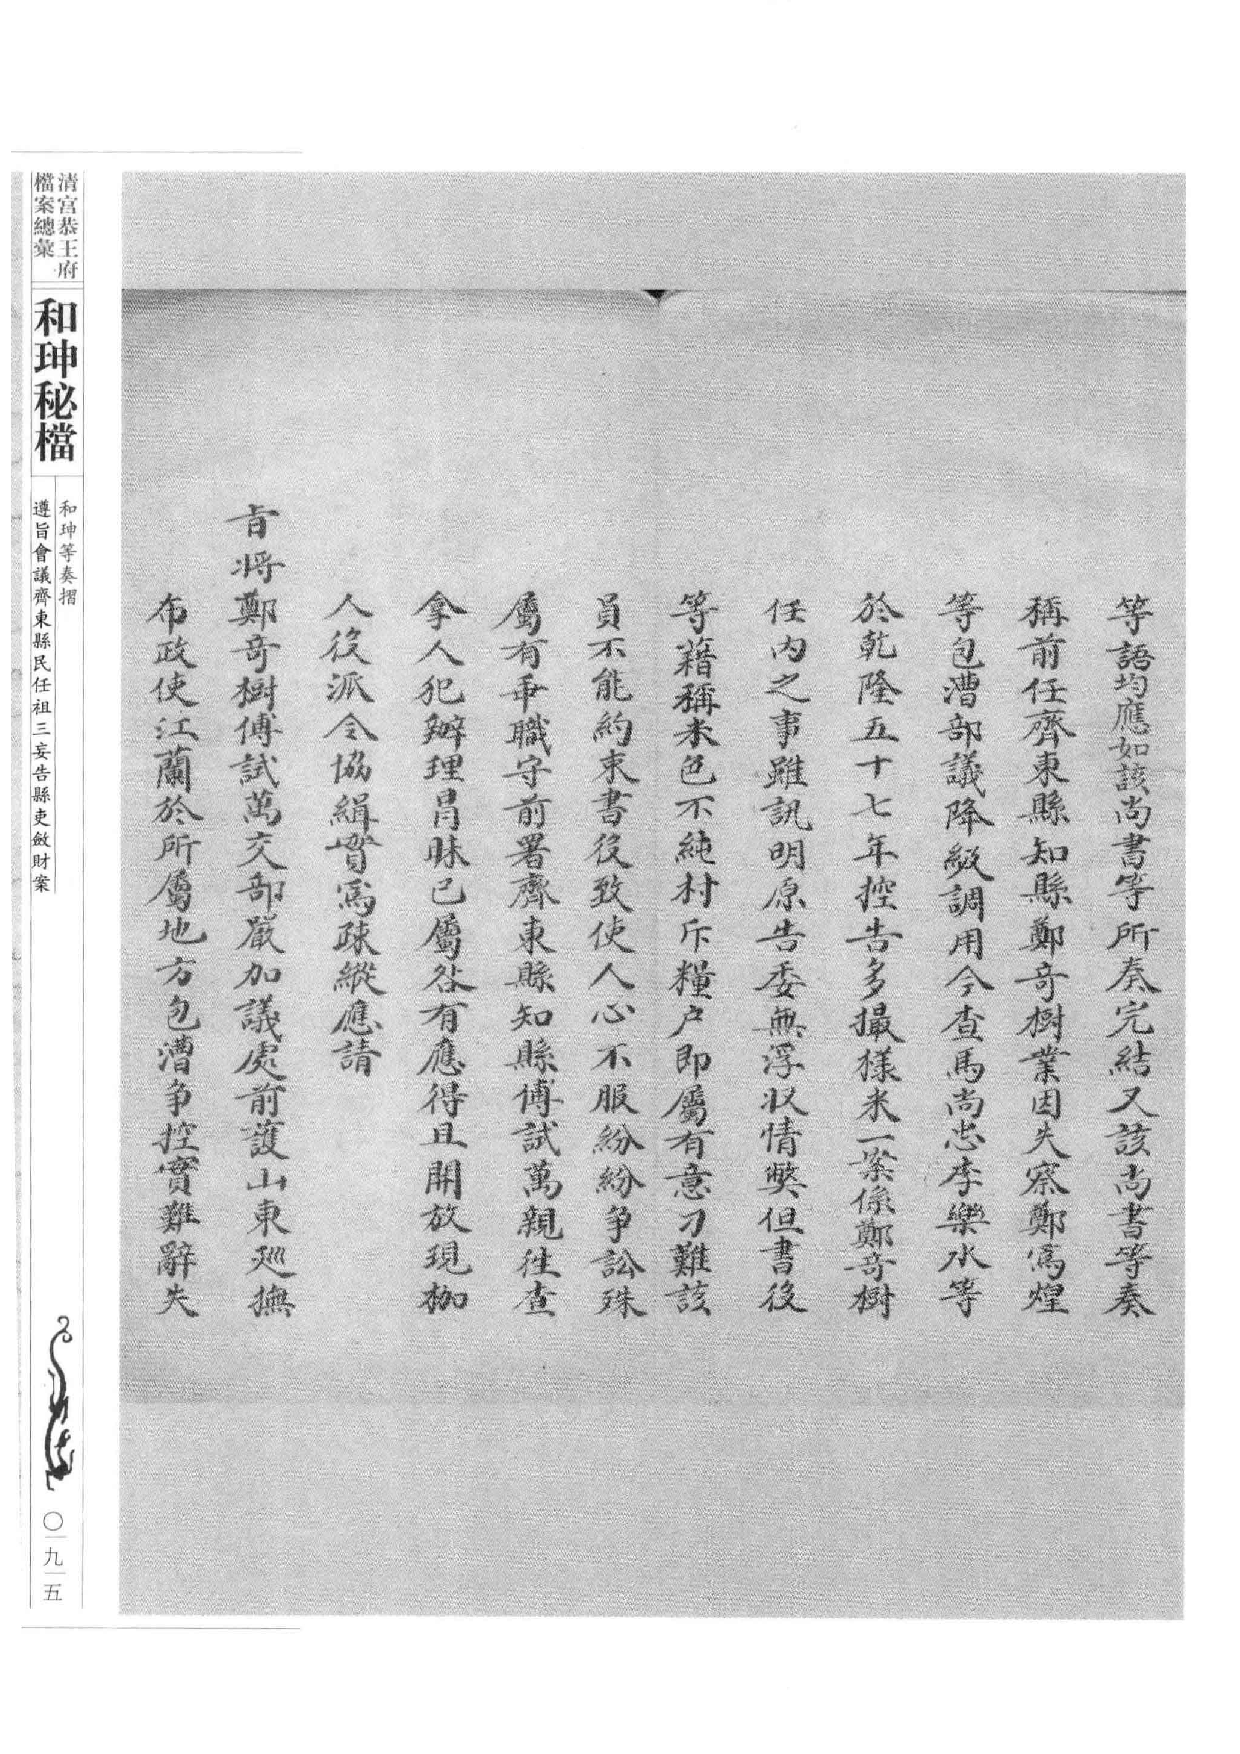 等語均應如該尚書等所奏完結又該尚書等奏
稱前任齊東縣知縣鄭奇樹業因失察鄭寫煌
等包漕部議降級調用今查馬尚志李樂水等
於乾隆五十七年控告多撮樣米一案係鄭奇樹
任內之事雖訊明原告委無浮收情獘但書役
等藉稱米色不純村斥糧户即屬有意刁難該
員不能約束書役致使人心不服紛紛争訟殊
屬有乖職守前署齊東縣知縣傅試萬親往查
拿人犯辦理冐昧已屬咎有應得且開放現枷
人役派令協緝實為疎縱應請
旨將鄭奇樹傅試萬交部嚴加議處前護山東廵撫
布政使江蘭於所屬地方包漕争控實難辭失
清宫恭王府
檔案總彙
和珅秘檔
和珅等奏摺
遵旨會議齊東縣民任祖三妄告縣吏斂財案
〇一九一五